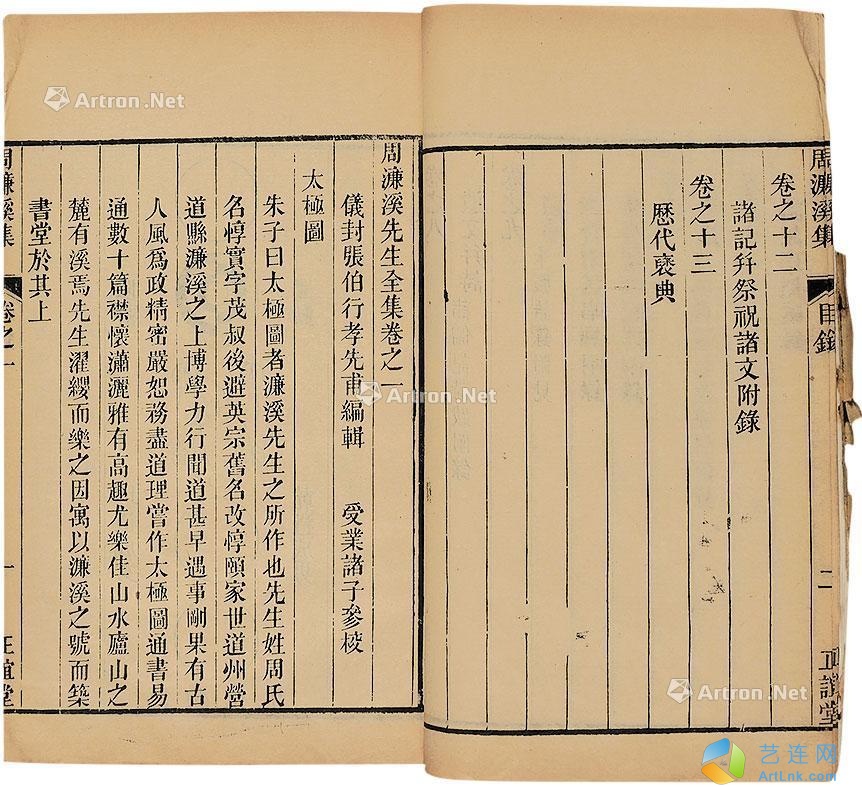 周濂溪集
目錄
二
正誼堂
卷之十二
諸記幷祭祝諸文附錄
卷之十三
歷代褒典
周濂溪先生全集卷之一
儀封張伯行孝先甫編輯 受業諸子參校
太極圖
朱子曰太極圖者濂溪先生之所作也先生姓周氏
名惇實字茂叔後避英宗舊名改惇頤家世道州營
道縣濂溪之上博學力行聞道甚早遇事剛果有古
人風爲政精密嚴恕務盡道理嘗作太極圖通書易
通數十篇襟懷瀟灑雅有高趣尤樂佳山水廬山之
麓有溪焉先生濯纓而樂之因寓以濂溪之號而築
書堂於其上
周濂溪集
卷之一
一
正誼堂
Artron.Net
Artron.Net
Artron.Net
艺连网
ArtLnk.com